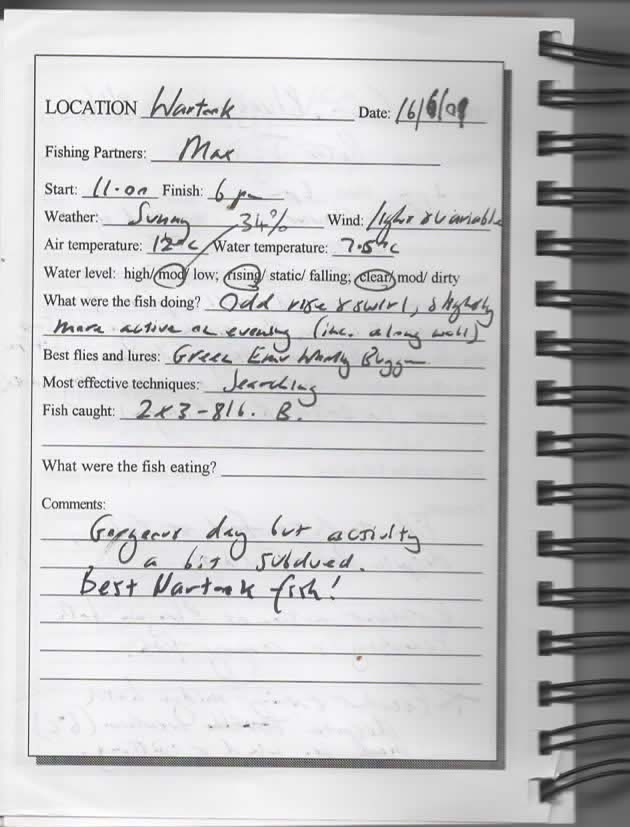 LOCATION Wartook Date: 16/6/09
Fishing Partners: Max
Start: 11.00 Finish: 6 pm
Weather: Sunny 34% Wind: light & variable
Air temperature: 12°C Water temperature: 7.5°C
Water level: high/mod/low; rising/static/falling; clear/mod/dirty
What were the fish doing? Odd rise & swirl, slightly
more active on evening (inc. along wall)
Best flies and lures: Green Emu Woolly Bugger
Most effective techniques: Searching
Fish caught: 2 x 3-8lb. B.
What were the fish eating?
Comments:
Gorgeous day but activity
a bit subdued.
Best Wartook fish!